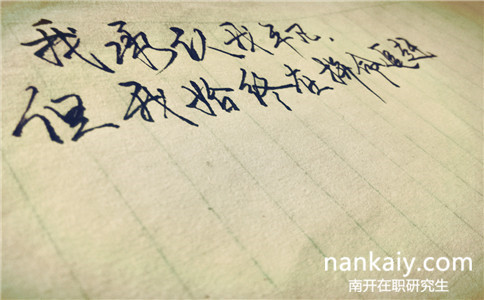 我承认我平凡.
但我始终在拼命追赶
nankaiy.com
南开在职研究生